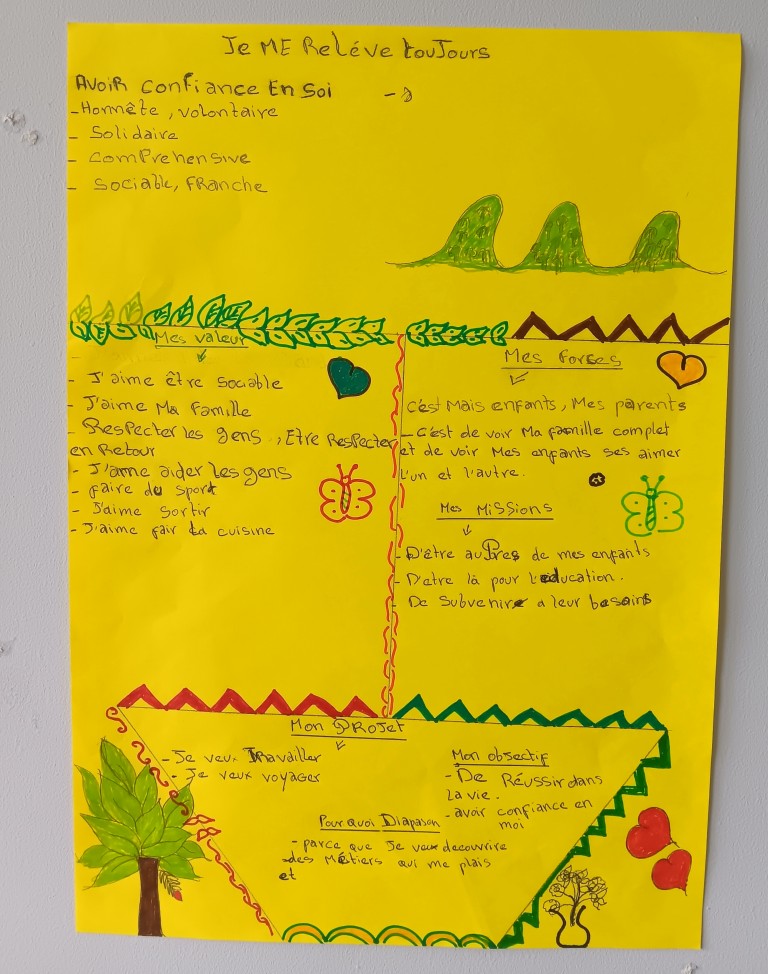 Je ME Reléve toujours
AVOIR confiance En Soi
- Honnête, volontaire
- Solidaire
- comprehensive
- Sociable, FRanche
Mes valeur
- J'aime être Sociable
- J'aime Ma Famille
- Respecter les gens, Etre Respecter
en Retour
- J'aime aider les gens
- faire du sport
- J'aime sortir
- J'aime fair la cuisine
Mes forces
c'est Mais enfants, Mes parents
- C'est de voir Ma famille complet
et de voir Mes enfants ses aimer
l'un et l'autre.
Mes Missions
- D'être auPres de mes enfants
- D'etre là pour l'education.
- De Subvenire a leur besoins
Mon PRojet
- Je veux Travailler
- Je veux voyager
Mon objectif
- De Réussir dans
la vie.
- avoir confiance en
moi
Pourquoi Diapason
- parce que Je veux decouvrire
des Métiers qui me plais
et